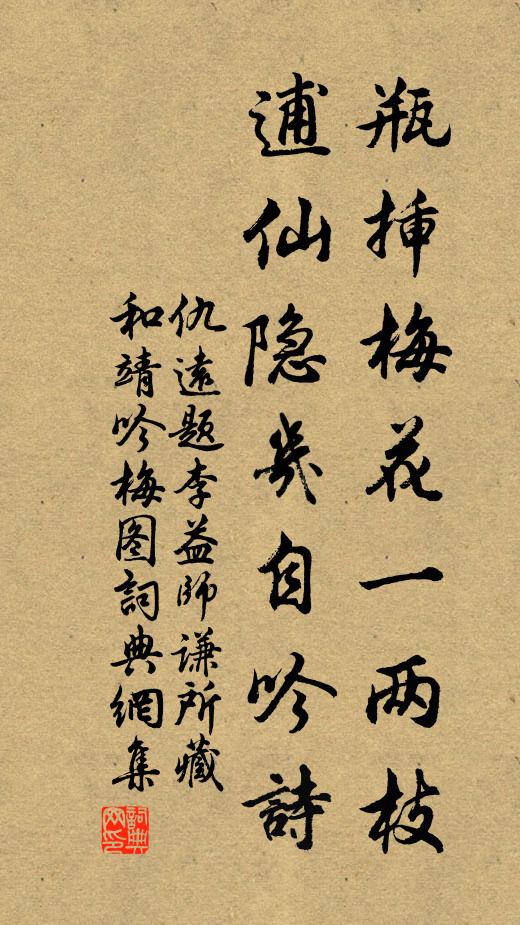 瓶挿梅花一两枝
逋仙隐几自吟詩
仇遠題李益師谦所藏
和靖吟梅图詞典網集
詞典网印